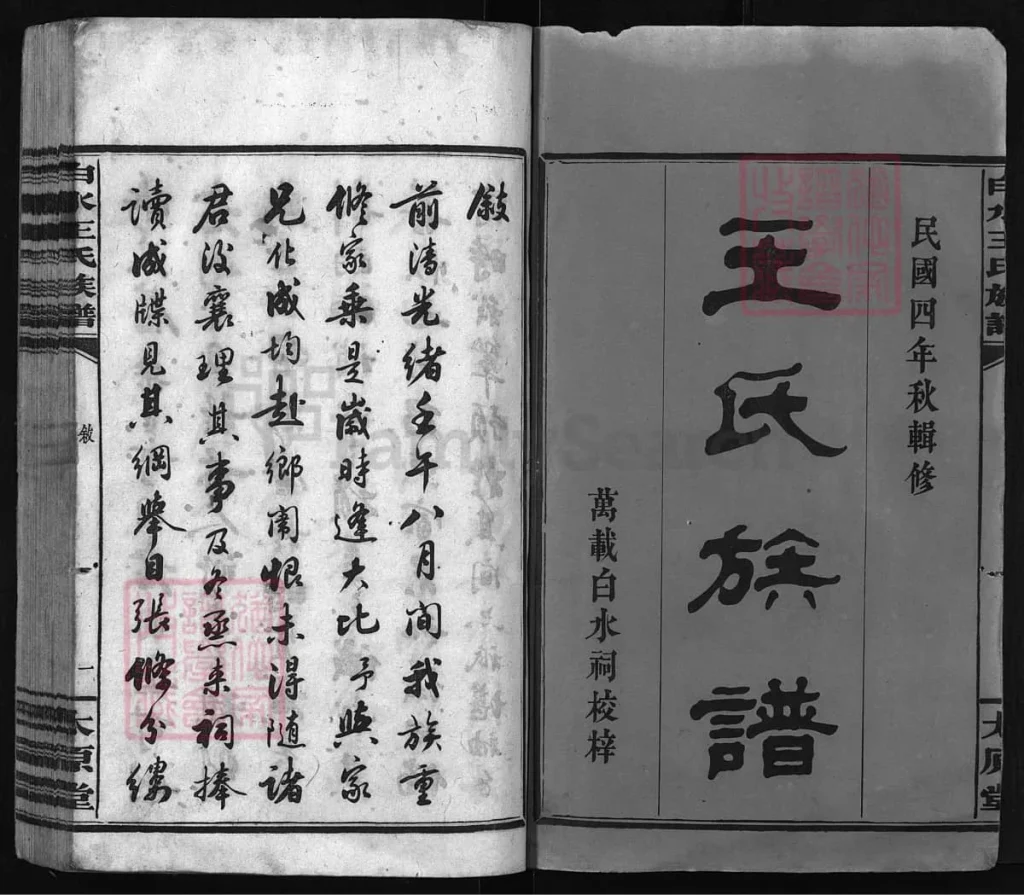 民國四年秋輯修
王氏族譜
萬載白水祠校梓
白水王氏族譜
太原堂
敘
前清光緒壬午八月間我族重
修家乘是歲時逢大比予與家
兄佐成均赴鄉闈恨未得隨諸
君後襄理其事及冬烝來祠捧
讀成牒見其綱舉目張條分縷
白水王氏族譜
敘
一
太原堂